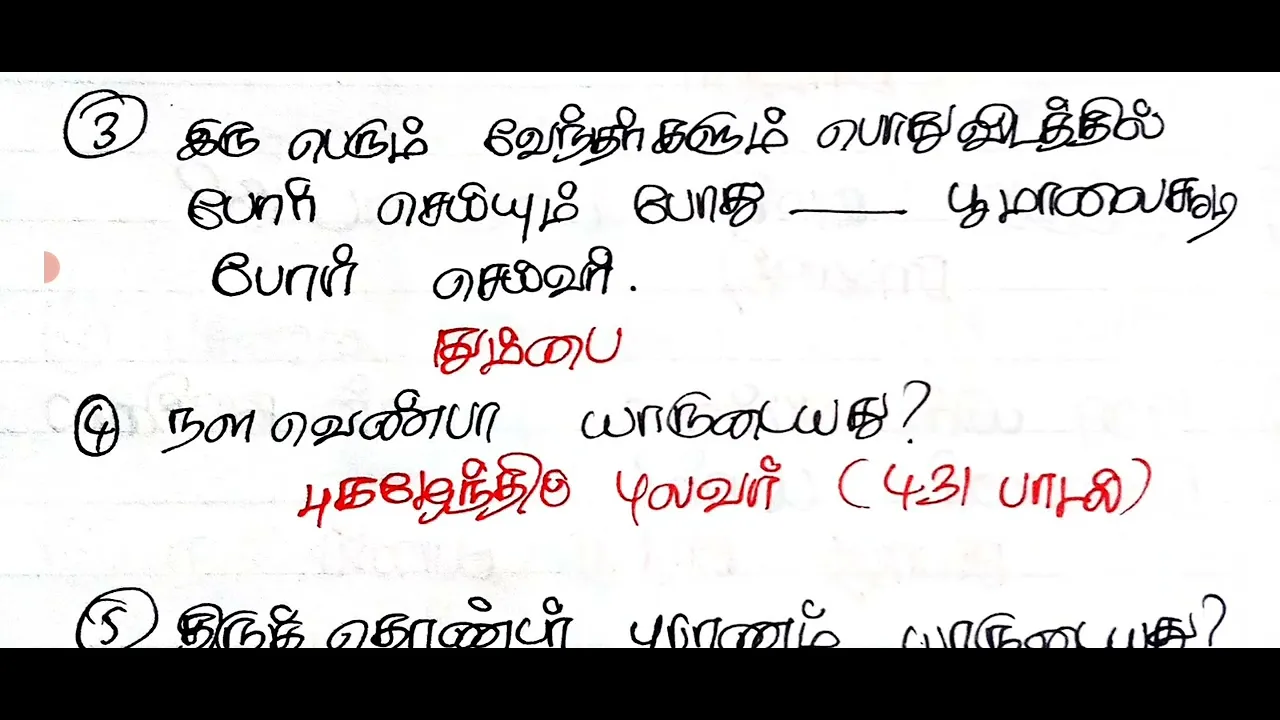 3 இரு பெரும் வேந்தர்களும் பொதுவிடத்தில்
போர் செய்யும் போது ___ பூமாலைசூடி
போர் செய்வர்.
தும்பை
4 நளவெண்பா யாருடையது?
புகழேந்திப் புலவர் (431 பாடல்)
5 திருத் தொண்டர் புராணம் யாருடையது?